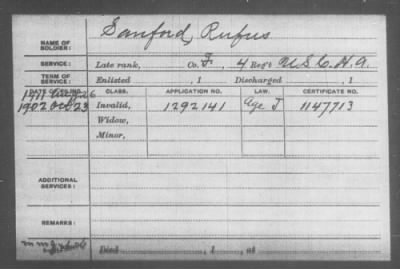 NAME OF SOLDIER: Sanford, Rufus
SERVICE: Late rank, Co. F, 4 Reg't U.S.C.H.A.
TERM OF SERVICE: Enlisted , 1 Discharged , 1
DATE OF FILING. CLASS. APPLICATION NO. LAW. CERTIFICATE NO.
1911 Aug 26
1902 Oct 23 Invalid, 1292141 Age J 1147713
Widow,
Minor,
ADDITIONAL SERVICES:
REMARKS:
Died , 1 , at